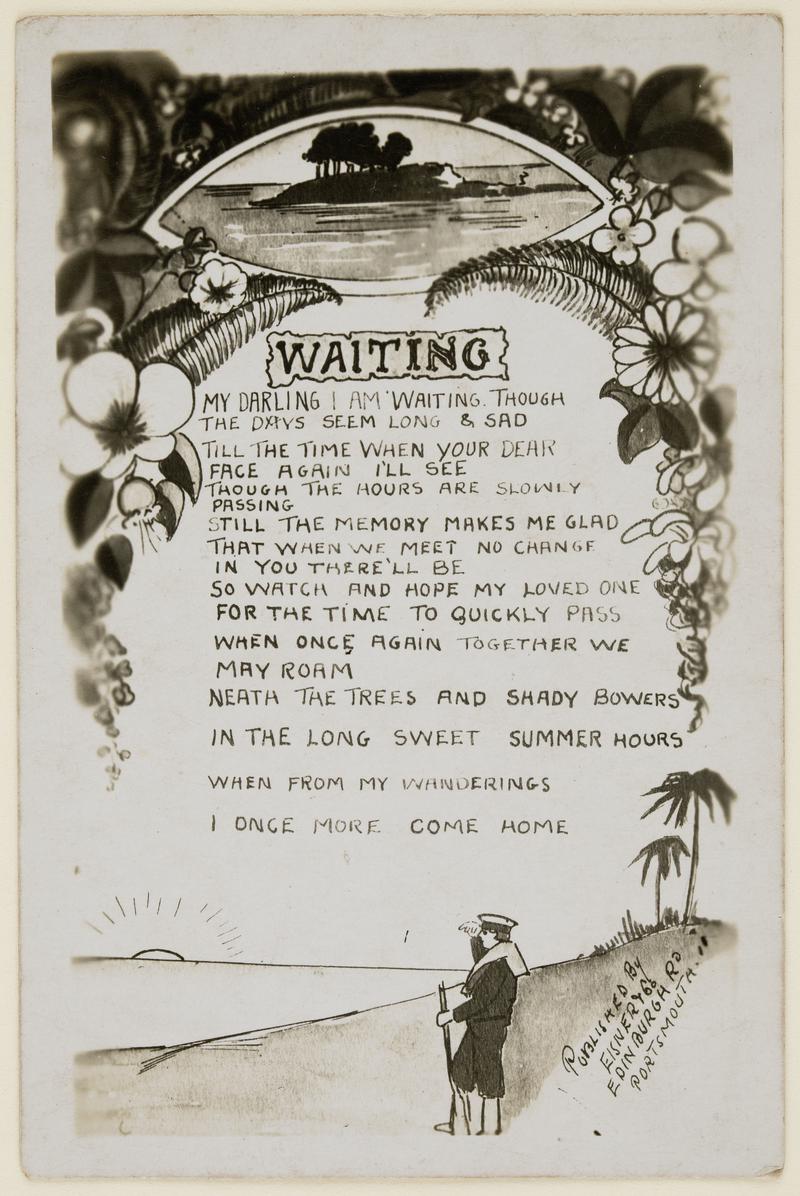 WAITING
MY DARLING I AM WAITING. THOUGH
THE DAYS SEEM LONG & SAD
TILL THE TIME WHEN YOUR DEAR
FACE AGAIN I'LL SEE
THOUGH THE HOURS ARE SLOWLY
PASSING
STILL THE MEMORY MAKES ME GLAD
THAT WHEN WE MEET NO CHANGE
IN YOU THERE'LL BE
SO WATCH AND HOPE MY LOVED ONE
FOR THE TIME TO QUICKLY PASS
WHEN ONCE AGAIN TOGETHER WE
MAY ROAM
NEATH THE TREES AND SHADY BOWERS
IN THE LONG SWEET SUMMER HOURS
WHEN FROM MY WANDERINGS
I ONCE MORE COME HOME
PUBLISHED BY
EISNER
EDINBURGH RD
PORTSMOUTH.